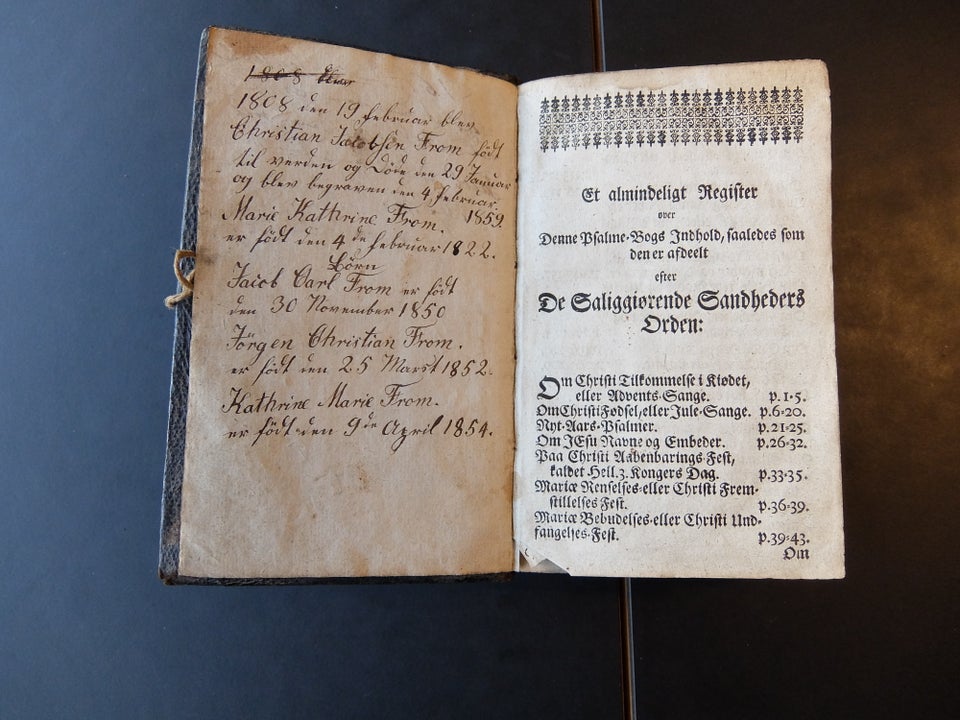 1808 blev
1808 den 19 Februar blev
Christian Jacobsen From født
til verden og Døde den 29 Januar
og blev begraven den 4 Februar.
1859.
Marie Kathrine From.
er født den 4 de Februar 1822.
Börn
Jacob Carl From er født
den 30 November 1850
Jörgen Christian From.
er født den 25 Marst 1852.
Kathrine Marie From.
er født den 9 de April 1854.
Et almindeligt Register
over
Denne Psalme-Bogs Indhold, saaledes som
den er afdeelt
efter
De Saliggiørende Sandheders
Orden:
Om Christi Tilkommelse i Kiødet,
eller Advents-Sange. p. 1-5.
Om Christi Fødsel, eller Jule-Sange. p. 6-20.
Nyt-Aars-Psalmer. p. 21-25.
Om JEsu Navne og Embeder. p. 26-32.
Paa Christi Aabenbarings Fest,
kaldet Hell. 3. Kongers Dag. p. 33-35.
Mariæ Renselses-eller Christi Frem-
stillelses Fest. p. 36-39.
Mariæ Bebudelses-eller Christi Und-
fangelses-Fest. p. 39-43.
Om